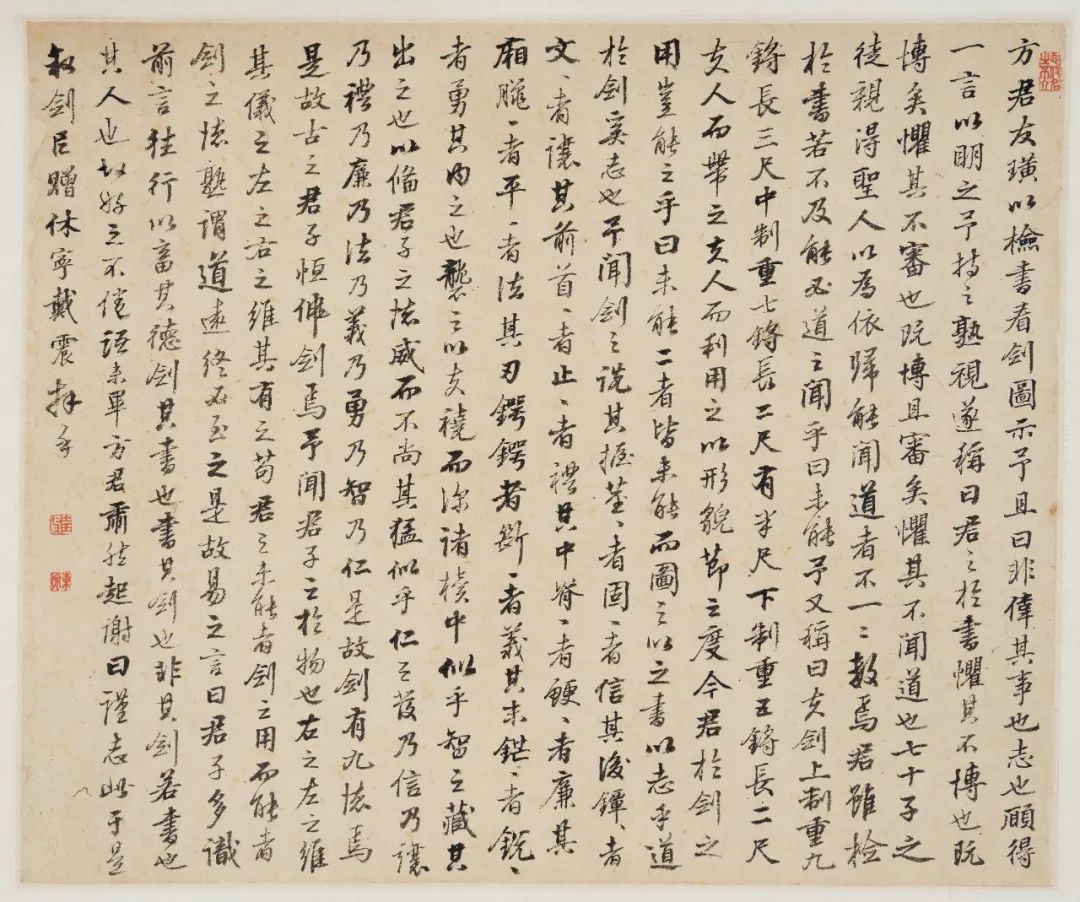 方君友璜以檢書看劍圖示予且曰非偉其事也志也願得
一言以明之予持之熟視遂稱曰君之於書懼其不博也既
博矣懼其不審也既博且審矣懼其不聞道也七十子之
徒親得聖人以為依歸能聞道者不一二數焉君雖檢
於書若不及能必道之聞乎曰未能予又稱曰夫劍上制重九
鋝長三尺中制重七鋝長二尺有半尺下制重五鋝長二尺
夫人而帶之夫人而利用之以形貌節之度今君於劍之
用豈能之乎曰未能二者皆未能而圖之以之書以志乎道
於劍奚志也予聞劍之說其握莖莖者固固者信其後鐔鐔者
文文者讓其前首首者止止者禮其中脊脊者鯁鯁者廉其
廂臘臘者平平者法其刃鍔鍔者斷斷者義其末鋩鋩者銳銳
者勇其內之也襲之以夫襓而深諸櫝中似乎智之藏其
出之也以脩君子之德威而不尚其猛似乎仁之發乃信乃讓
乃禮乃廉乃法乃義乃勇乃智乃仁是故劍有九德焉
是故古之君子恒佩劍焉予聞君子之於物也右之左之維
其儀之左之右之維其有之苟君之未能者劍之用而能者
劍之德孰謂道遠終必至之是故易之言曰君子多識
前言往行以畜其德劍其書也書其劍也非其劍若書也
其人也故好之不倦語未畢方君肅然起謝曰謹志此于是
叙劍臣贈休寧戴震拜手